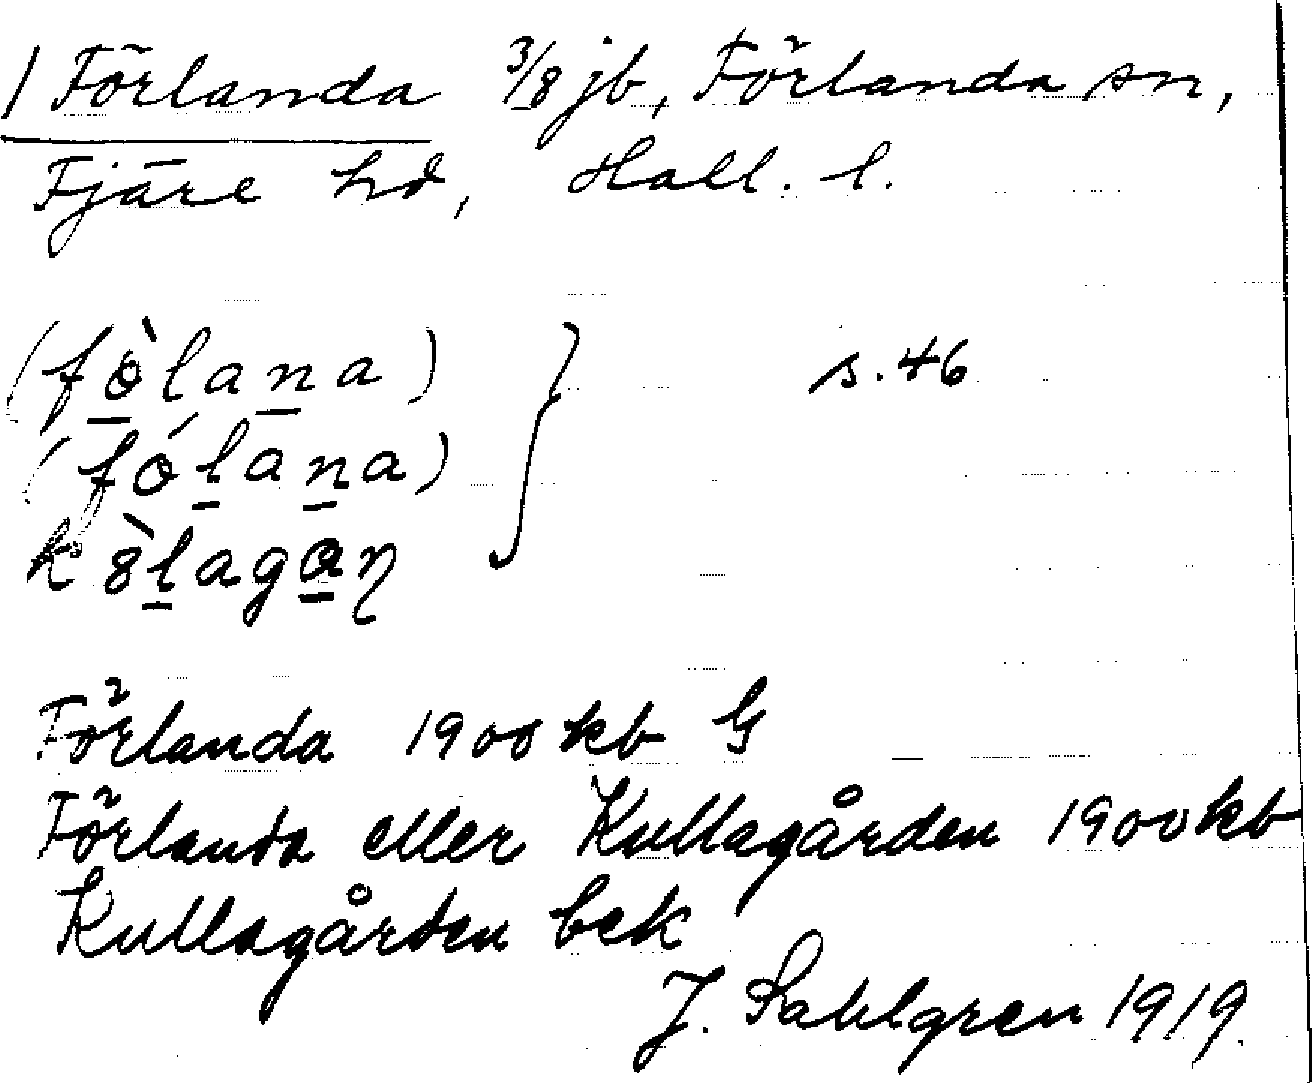 1 Förlanda 3/8 jb, Förlanda sn,
Fjäre hd, Hall. l.
(fò̱laṉa) } s.46
(fóḻaṉa)
k8̀ḻaga̱ŋ
Förlanda 1900 kb G
Förlanda eller Kullagården 1900 kb
Kullagården bek
J. Sahlgren 1919.